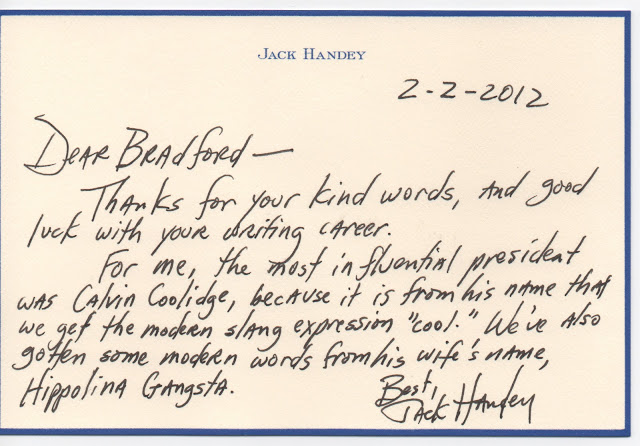 Jack Handey
2-2-2012
Dear Bradford —
Thanks for your kind words, and good
luck with your writing career.
For me, the most influential president
was Calvin Coolidge, because it is from his name that
we get the modern slang expression "cool." We've also
gotten some modern words from his wife's name,
Hippolina Gangsta.
Best,
Jack Handey